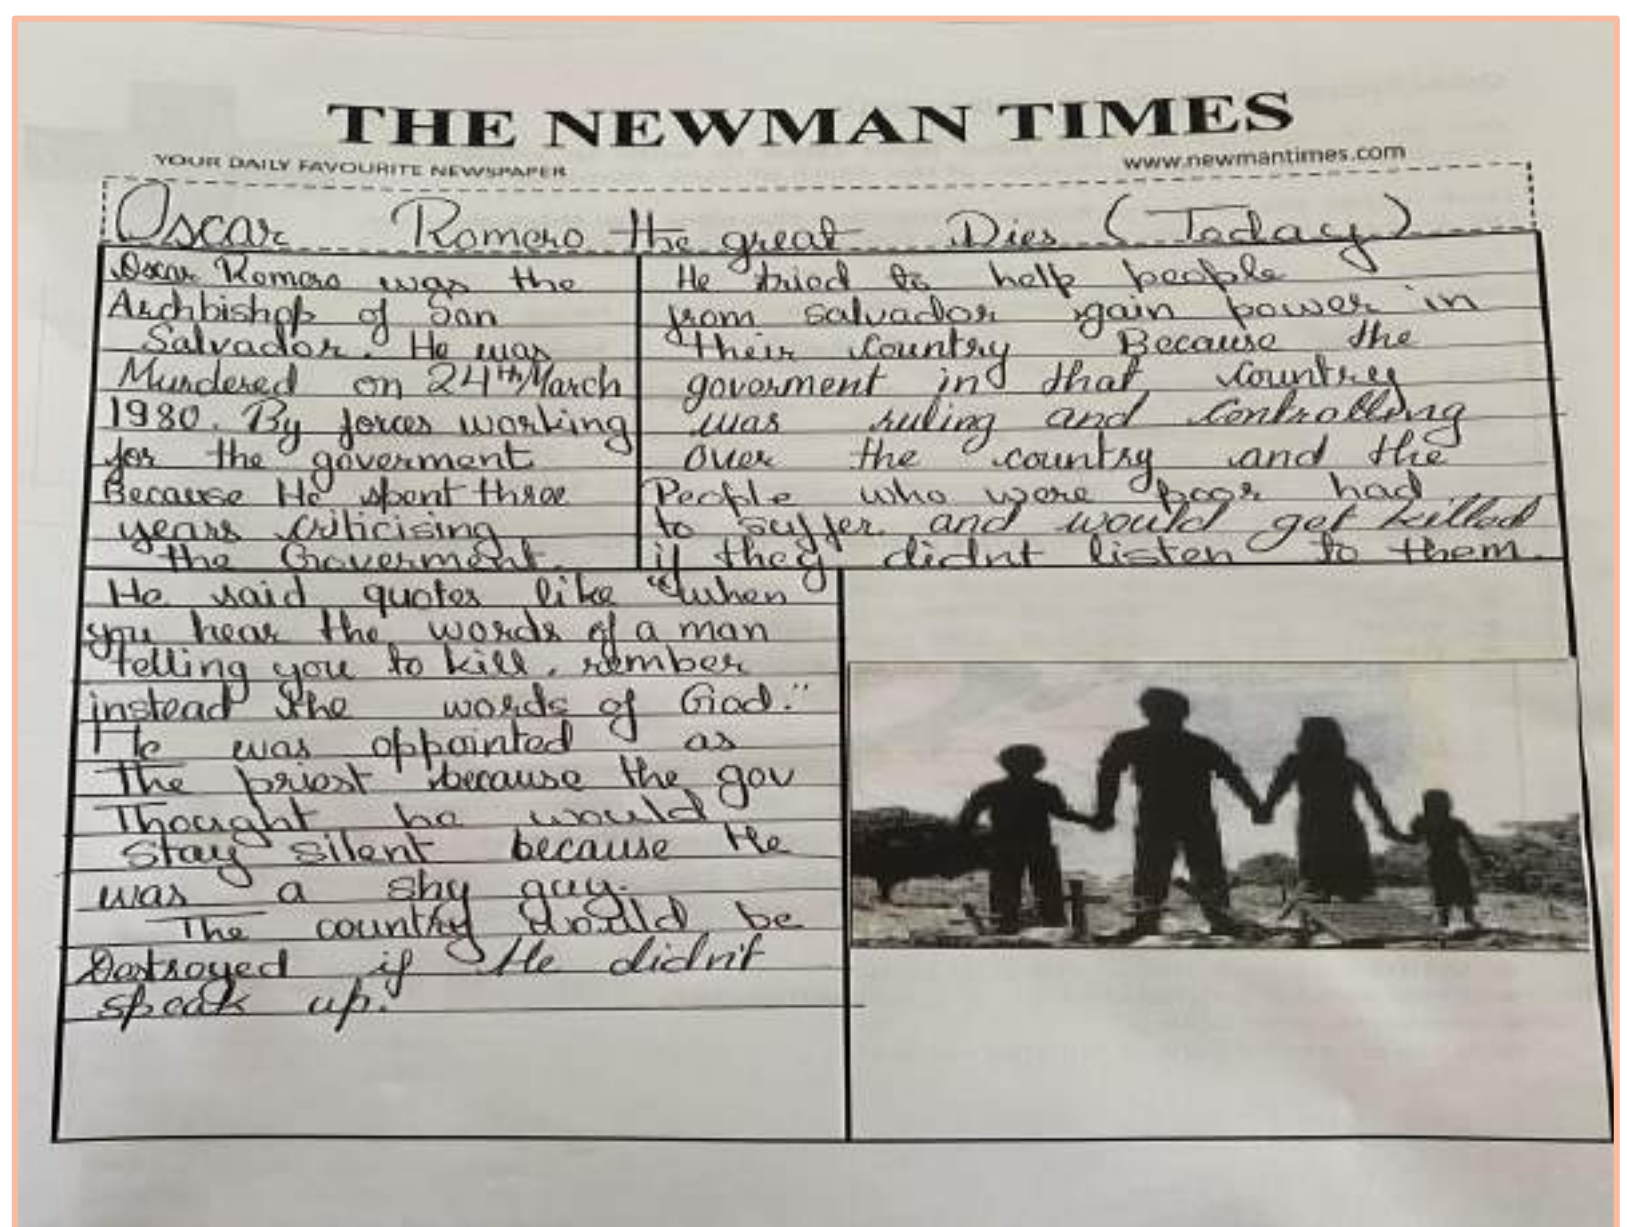 THE NEWMAN TIMES
YOUR DAILY FAVOURITE NEWSPAPER
www.newmantimes.com
Oscar Romero the great Dies (Today)
Oscar Romero was the
Archbishop of San
Salvador. He was
Murdered on 24th March
1980. By forces working
for the goverment
Because He spent three
years criticising
the Goverment.
He tried to help people
from salvador gain power in
their country Because the
goverment in that country
was ruling and controlling
over the country and the
People who were poor had
to suffer and would get killed
if they didnt listen to them.
He said quotes like "when
you hear the words of a man
telling you to kill, rember
instead the words of God."
He was appointed as
The priest because the gov
Thought he would
stay silent because He
was a shy guy.
The country would be
Destroyed if He didn't
speak up.